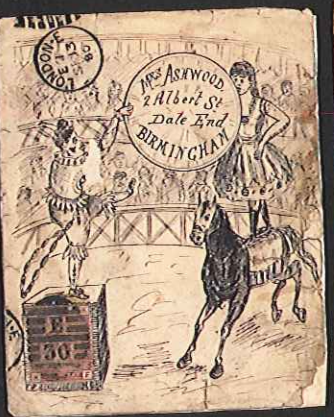 LONDON·E
MRS ASHWOOD
2 Albert St
Date End
BIRMINGHAM
E
30